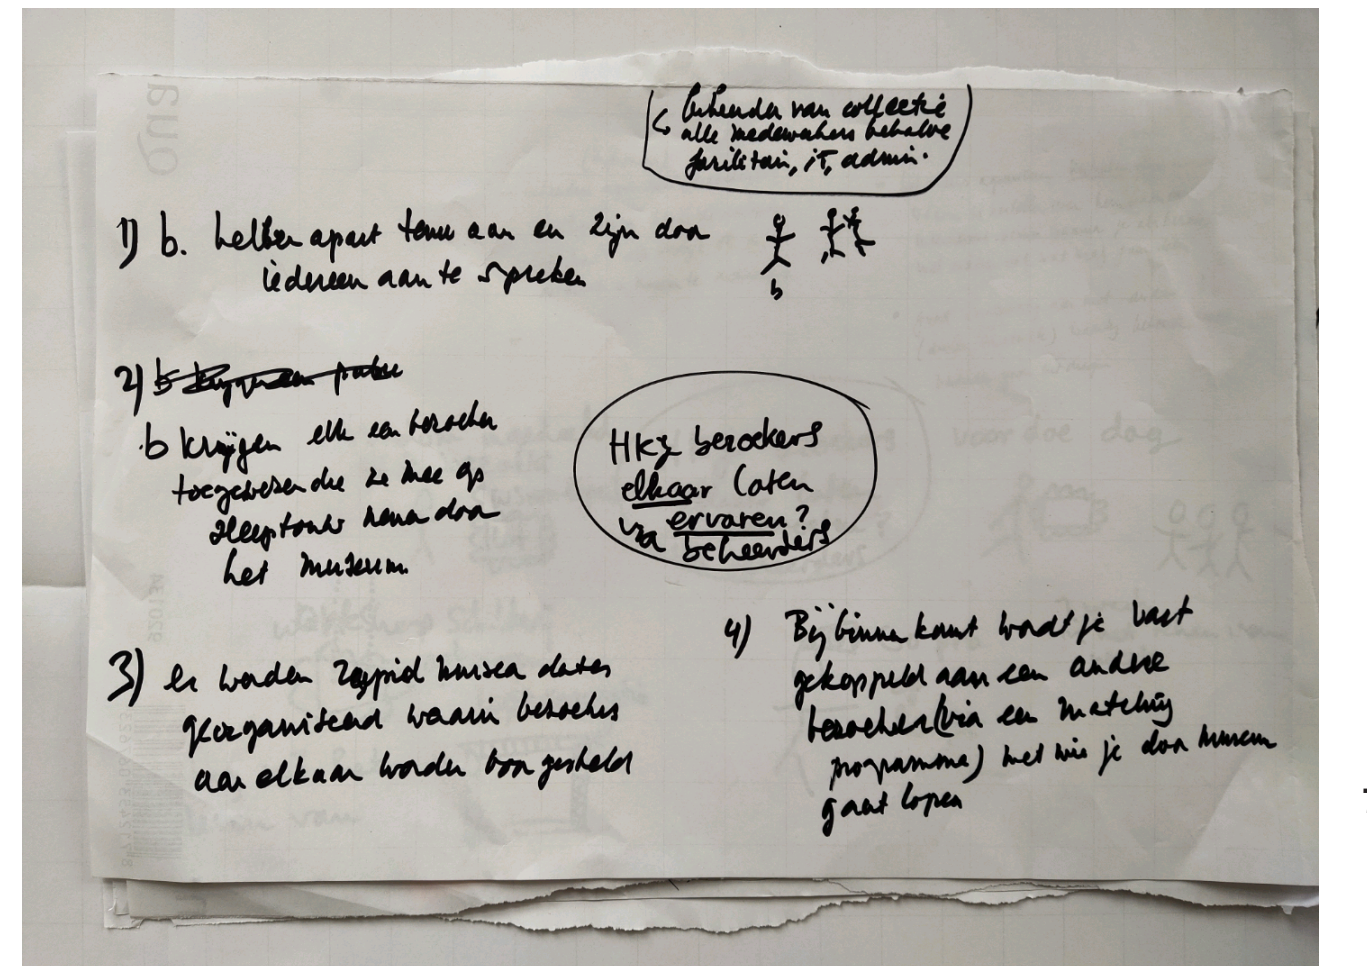 beheerder van collectie
alle medewerkers behalve
facilitair, IT, admin.
1) b. hebben apart tenue aan en zijn door
iedereen aan te spreken
b
2)
b krijgen elk een bezoeker
toegewezen die ze mee op
sleeptouw nemen door
het museum.
HKJ bezoekers
elkaar laten
ervaren?
via beheerders
3) er worden museum dates
georganiseerd waarin bezoekers
aan elkaar worden voorgesteld
4) Bij binnenkomst wordt je vast
gekoppeld aan een andere
bezoeker (via een matching
programma) met wie je door museum
gaat lopen